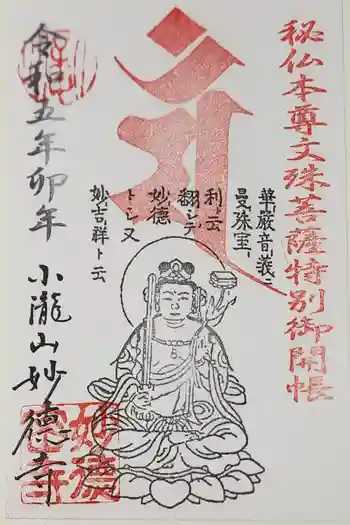 秘仏本尊文殊菩薩特別御開帳
華厳音義ニ
曼珠室
利ト云
翻シテ
妙徳
トシ又
妙吉祥ト云
令和五年卯年
小瀧山妙德寺